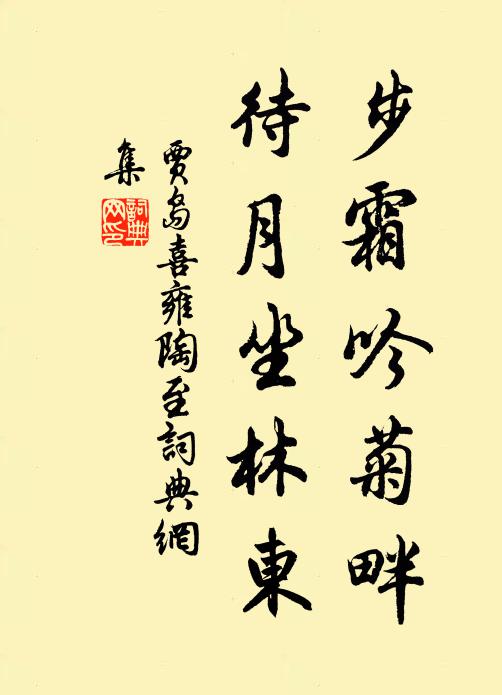 步霜吟菊畔
待月坐林東
賈島喜雍陶至詞典網
集
詞典
网印